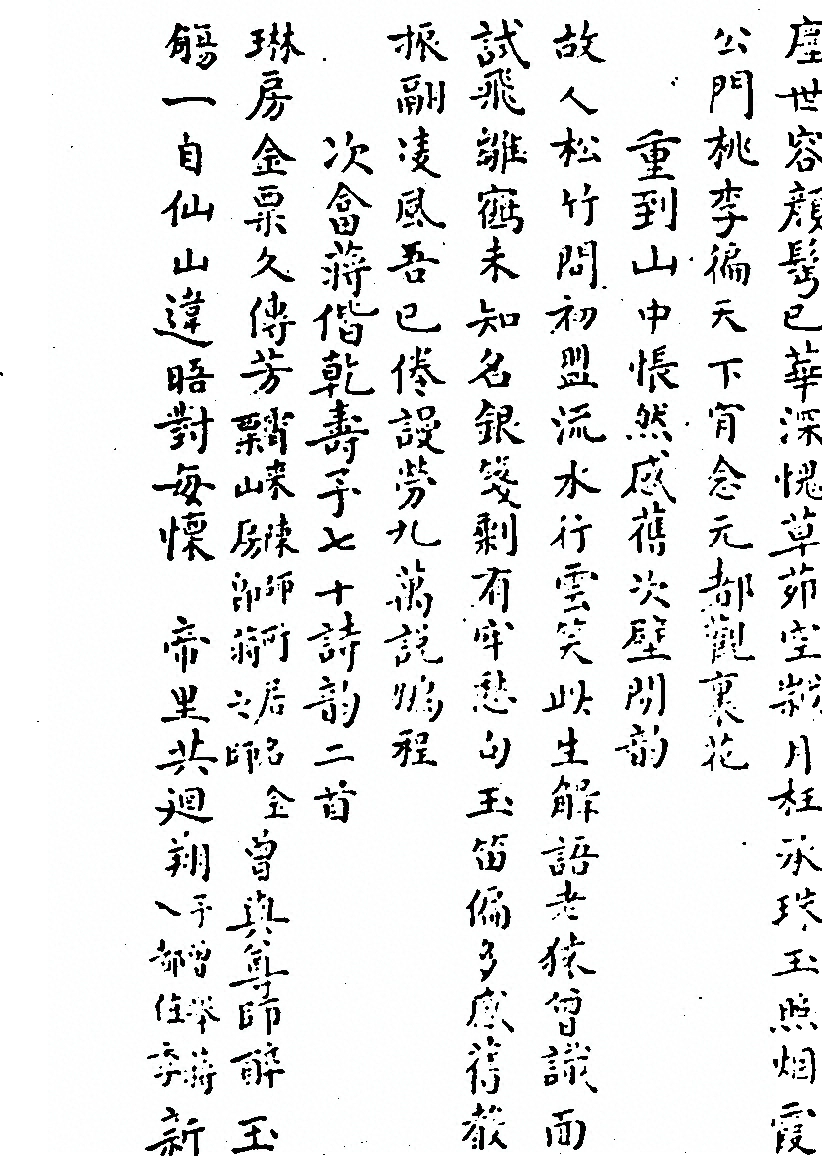 塵世容顏髩已華深愧草茆空月枉承珠玉照烟霞
公門桃李徧天下肯念元都觀裏花
重到山中悵然感舊次壁間韵
故人松竹問初盟流水行雲笑此生解語老猿曾識面
試飛雛寉未知名銀箋剩有牢愁句玉笛偏多感舊聲
振翮凌風吾已倦謾勞九萬說鵬程
次畣蔣偕乾壽予七十詩韵二首
琳房金粟久傳芳霄崍陳師所居名金粟山房即蔣之師曾與尊師醉玉
觴一自仙山違晤對每懷 帝里共迴翔予曾舉蔣入都住季新